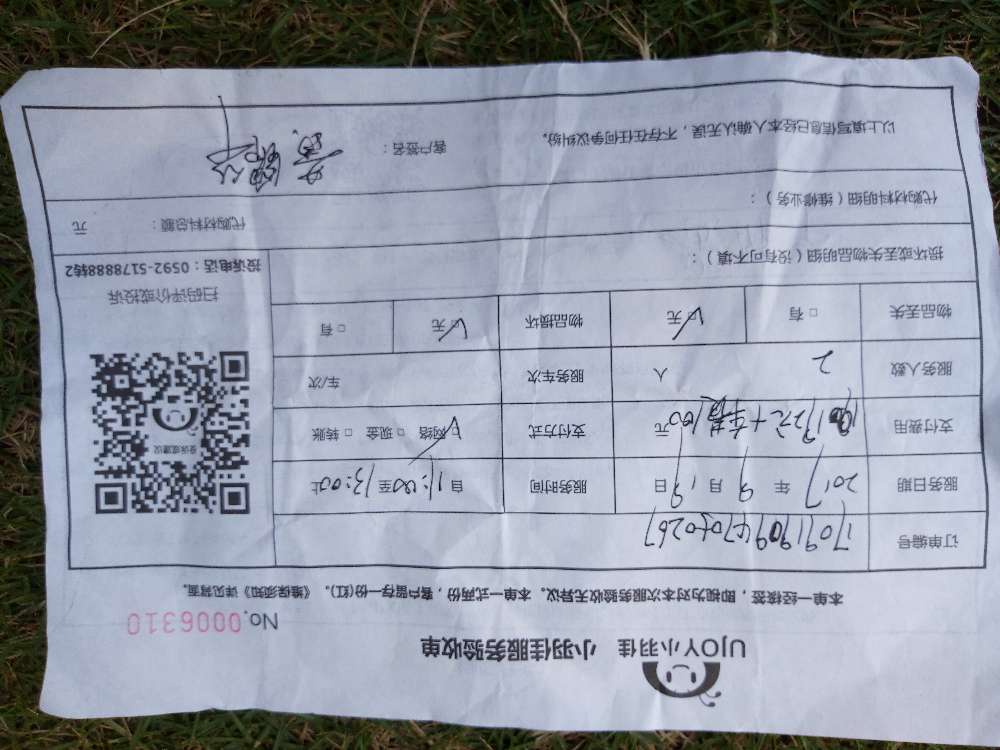 UJOY小羽佳 小羽佳服务验收单
No.0006310
本单一经接签，即视为对本次服务验收无异议。本单一式两份，客户留存一份(红)。《维保须知》详见背面。
订单编号
服务日期 2017 年 9 月 19 日 服务时间 自 11:00 至 13:00 止
支付费用 元 支付方式 ☑网络 □现金 □转账
服务人数 2 人 服务车次 车/次
物品丢失 □有 ☑无 物品损坏 ☑无 □有
投诉或建议
扫码评价或投诉
投诉电话：0592-5178888转2
损坏或丢失物品明细（没有可不填）：
代购材料明细（维修业务）： 代购材料总额： 元
以上填写信息已经本人确认无误，不存在任何争议纠纷。 客户签名：